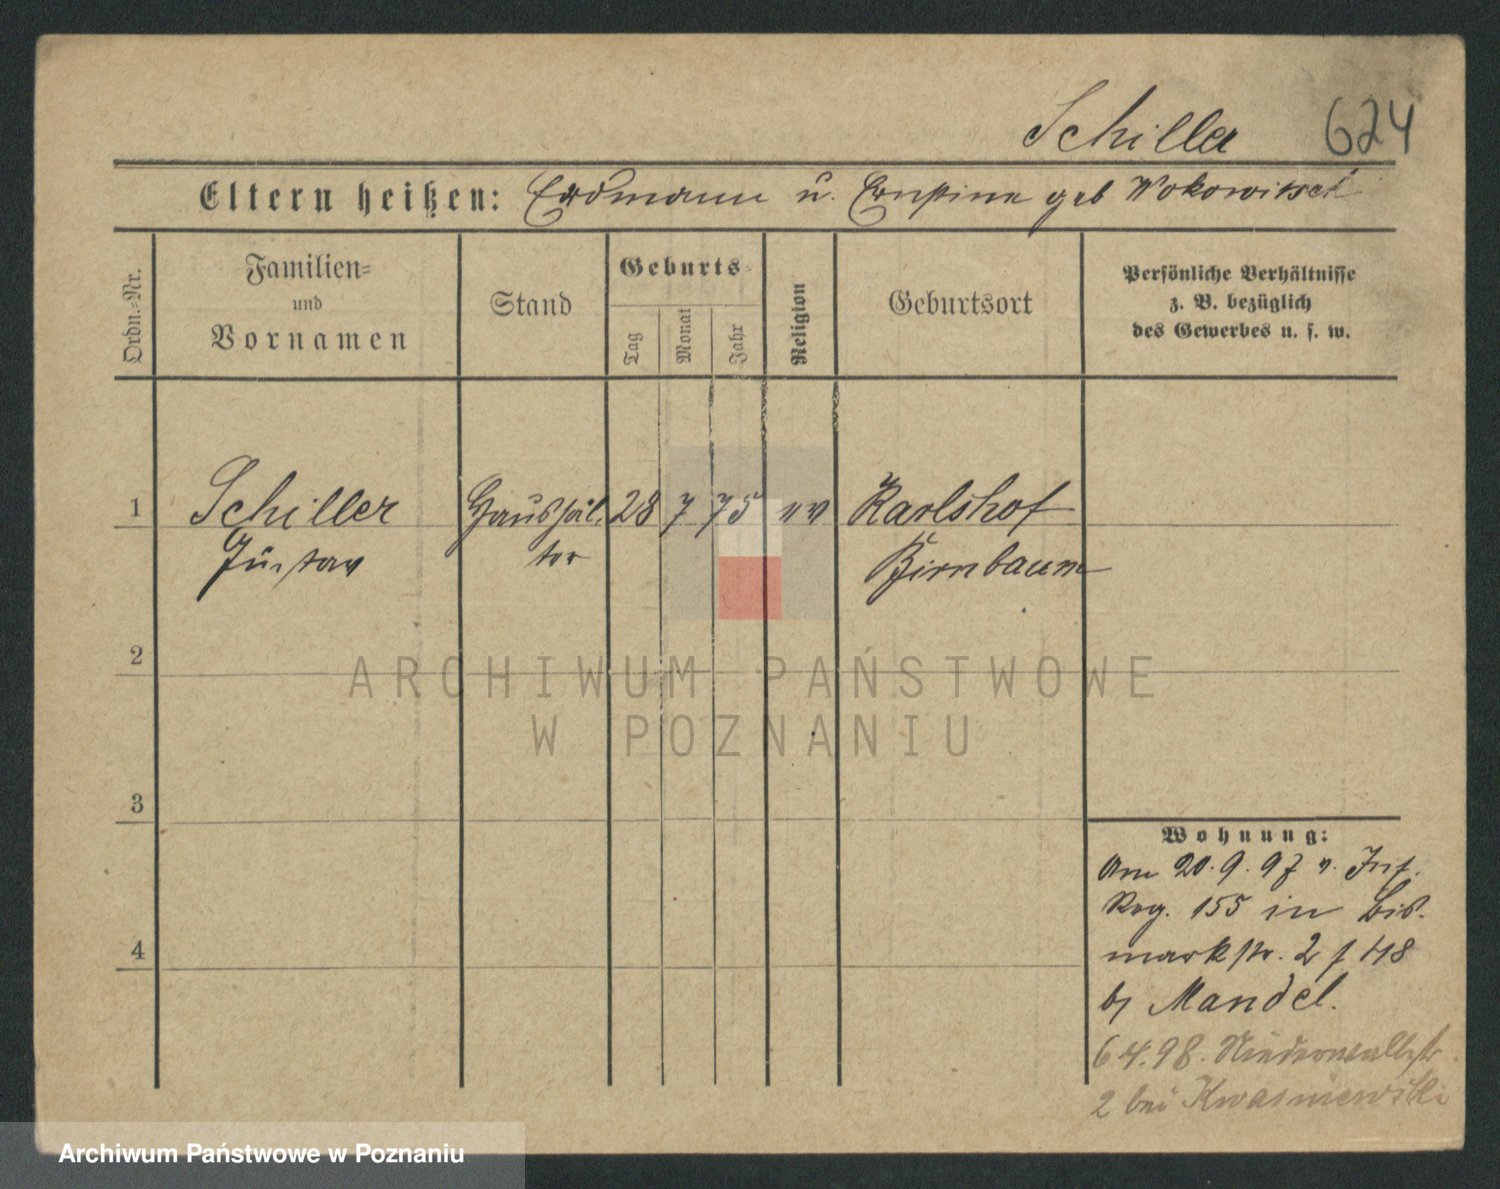 Schiller 624
Eltern heißen: Erdmann u. Ernstine geb Wokowitsch
Ordn.-Nr.
Familien-
und
Vornamen
Stand
Geburts-
Tag
Monat
Jahr
Religion
Geburtsort
Persönliche Verhältnisse
z. B. bezüglich
des Gewerbes u. s. w.
1 Schiller Haushäl- 28 7 75 ev Karlshof
Gustav ter Birnbaum
2
ARCHIWUM PAŃSTWOWE
W POZNANIU
3
4
Wohnung:
Am 20.9.97 v. Inf.
Reg. 155 in Bis-
markstr. 2
b/ Mandel.
6 4. 98. Niederwallstr.
2 bei Kwasniewski
Archiwum Państwowe w Poznaniu